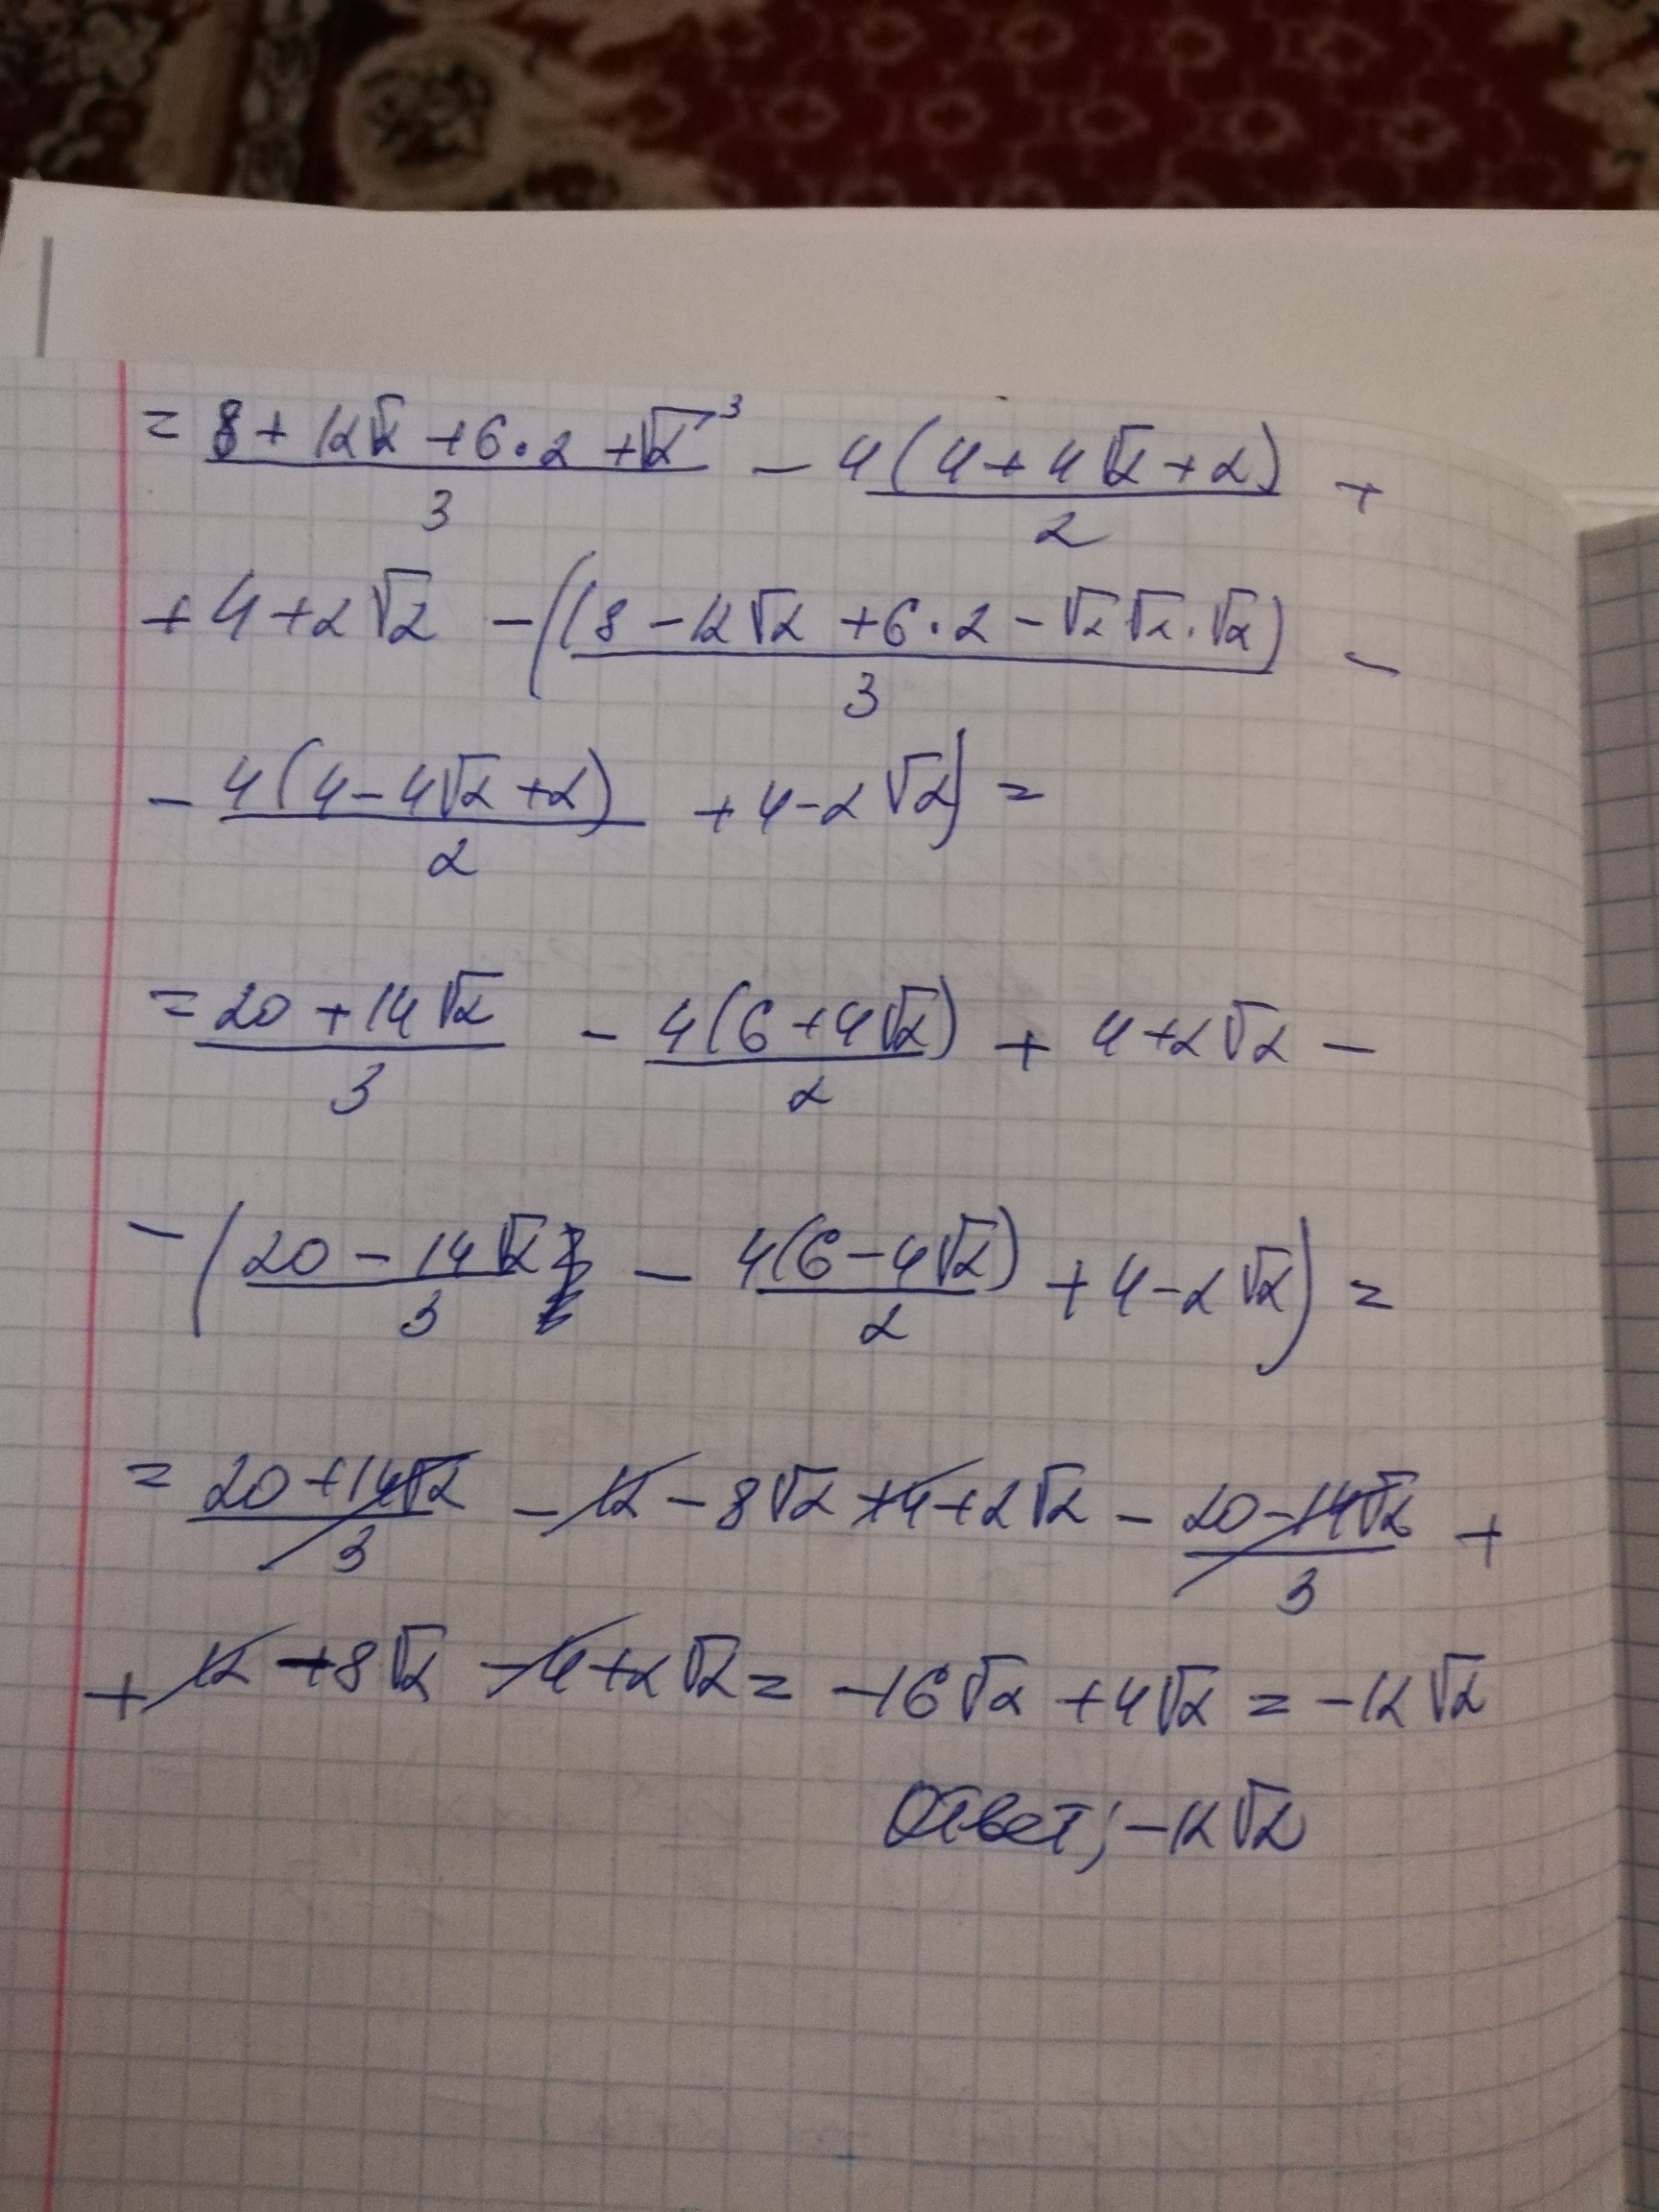 = (8 + 12√2 + 6·2 + √2³)/3 − 4(4 + 4√2 + 2)/2 +
+ 4 + 2√2 − ((8 − 12√2 + 6·2 − √2√2·√2)/3 −
− 4(4 − 4√2 + 2)/2 + 4 − 2√2) =
= (20 + 14√2)/3 − 4(6 + 4√2)/2 + 4 + 2√2 −
− ((20 − 14√2)/3 − 4(6 − 4√2)/2 + 4 − 2√2) =
= (20 + 14√2)/3 − 12 − 8√2 + 4 + 2√2 − (20 − 14√2)/3 +
+ 12 − 8√2 − 4 + 2√2 = −16√2 + 4√2 = −12√2
Ответ; −12√2